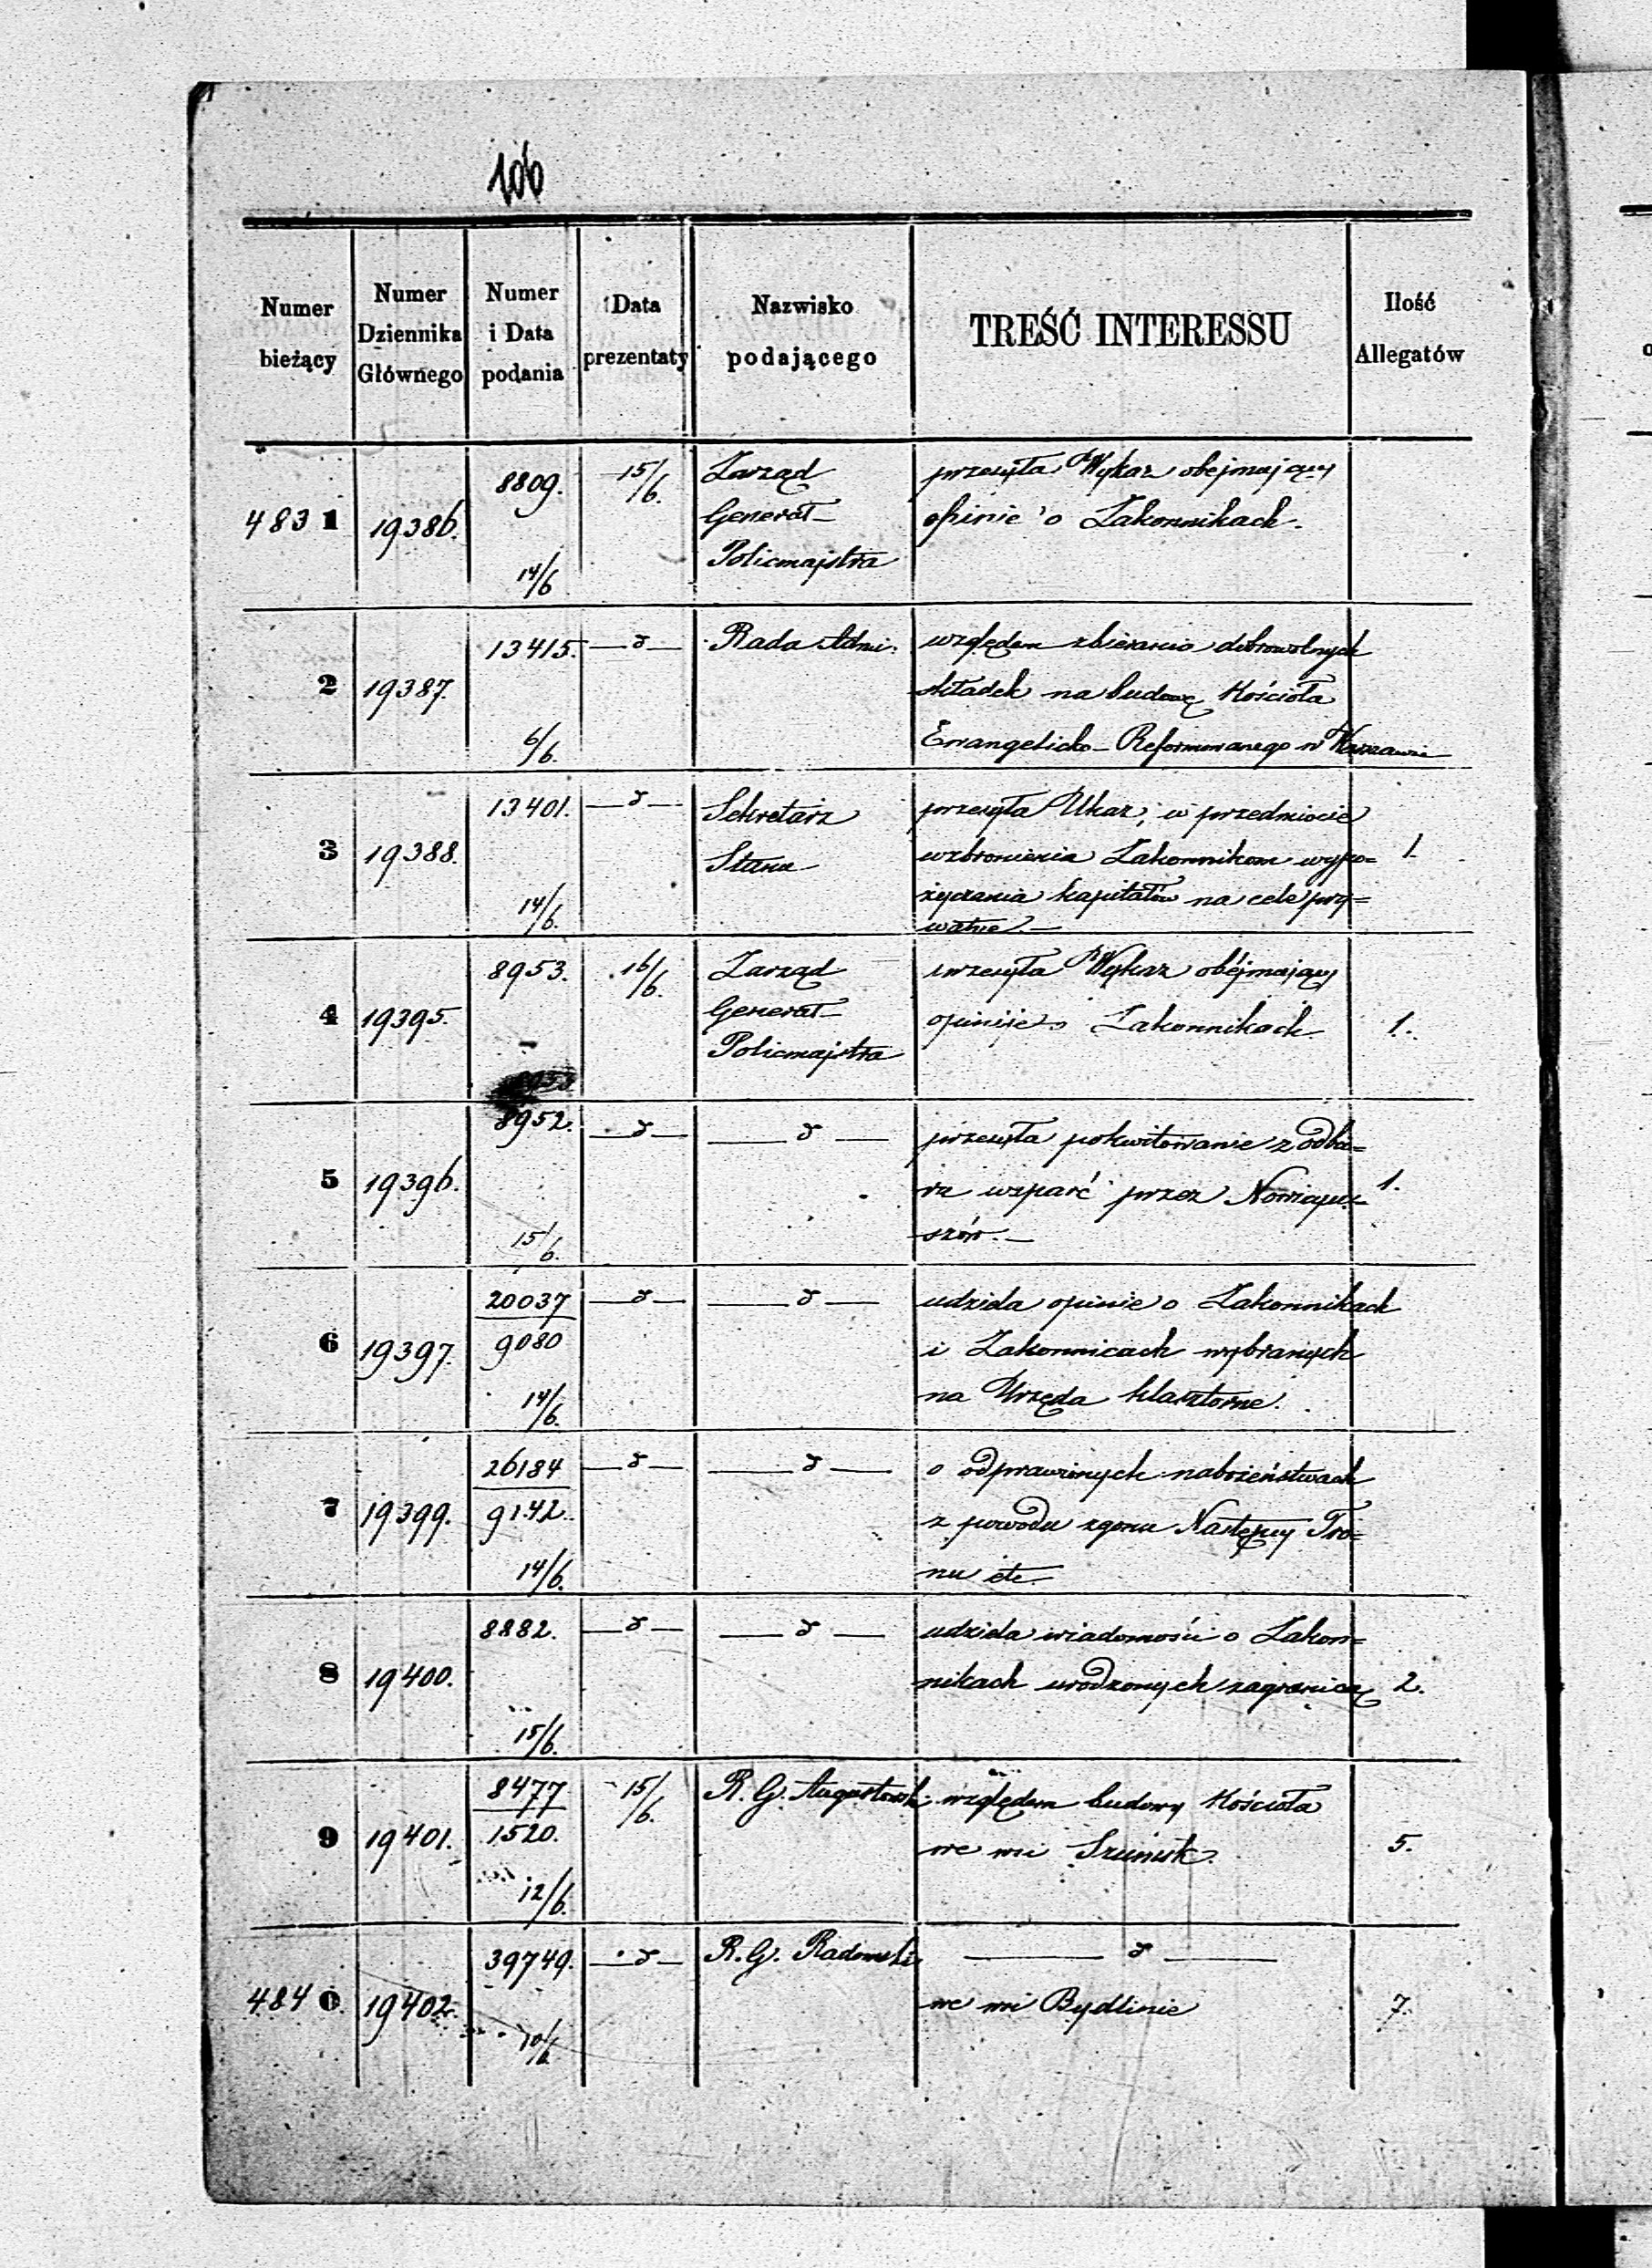 106
Numer bieżący
Numer Dziennika Głównego
Numer i Data podania
Data prezentaty
Nazwisko podającego
TREŚĆ INTERESSU
Ilość Allegatów
4831 19386. 8809. 14/6 15/6. Zarząd Generał- Policmajstra
przesyła Wykaz obejmujący
opinie o Zakonnikach.
2 19387. 13415. 6/6. —d— Rada Admi:
względem zbierania dobrowolnych
składek na budowę Kościoła
Ewangelicko-Reformowanego w Warszawie
3 19388. 13401. 14/6. —d— Sekretarz Stanu
przesyła Ukaz, w przedmiocie
wzbronienia Zakonnikom wypo= 1.
życzania kapitałów na cele pry=
watne.—
4 19395. 8953. 16/6. Zarząd Generał- Policmajstra
przesyła Wykaz obejmujący
opinije o Zakonnikach 1.
5 19396. 8952. 15/6. —d— —d—
przesyła pokwitowanie z odbio=
ru wsparć przez 1.
szów.—
6 19397. 20037 9080 14/6. —d— —d—
udziela opinie o Zakonnikach
i Zakonnicach wybranych
na Urzęda klasztorne.
7 19399. 26184 9142. 14/6. —d— —d—
o odprawionych nabożeństwach
z powodu zgonu Następcy Tro=
nu etc.
8 19400. 8882. 15/6. —d— —d—
udziela wiadomości o Zakon=
nikach urodzonych zagranicą 2.
9 19401. 8477 1520. 12/6. 15/6. R. G. Augustowski
względem budowy Kościoła
we wsi 5.
4840. 19402. 39749. 10/6 —d— R. G. Radomski
—d—
we wsi Bydlinie 7.